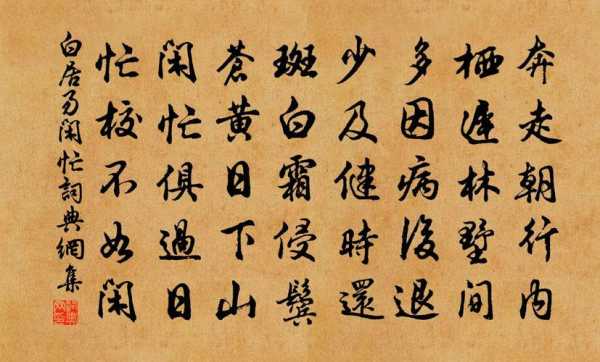 奔走朝行内
栖遲林墅间
多因病後退
少及健時還
斑白霜侵鬓
蒼黄日下山
闲忙俱過日
忙校不如闲
白居易闲忙詞典網集